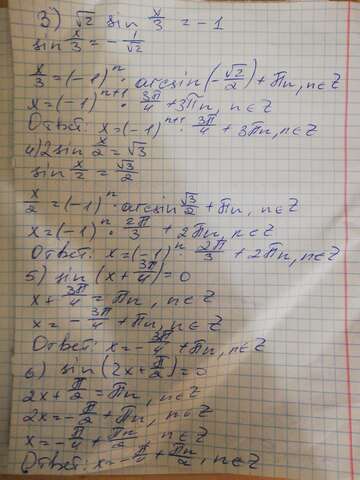 3) √2 sin x/3 = -1
sin x/3 = - 1/√2
x/3 = (-1)^n · arcsin(-√2/2) + πn, n∈Z
x = (-1)^(n+1) · 3π/4 + 3πn, n∈Z
Ответ: x = (-1)^(n+1) · 3π/4 + 3πn, n∈Z
4) 2 sin x/2 = √3
sin x/2 = √3/2
x/2 = (-1)^n · arcsin √3/2 + πn, n∈Z
x = (-1)^n · 2π/3 + 2πn, n∈Z
Ответ: x = (-1)^n · 2π/3 + 2πn, n∈Z
5) sin (x + 3π/4) = 0
x + 3π/4 = πn, n∈Z
x = - 3π/4 + πn, n∈Z
Ответ: x = - 3π/4 + πn, n∈Z
6) sin (2x + π/2) = 0
2x + π/2 = πn, n∈Z
2x = - π/2 + πn, n∈Z
x = - π/4 + πn/2, n∈Z
Ответ: x = - π/4 + πn/2, n∈Z